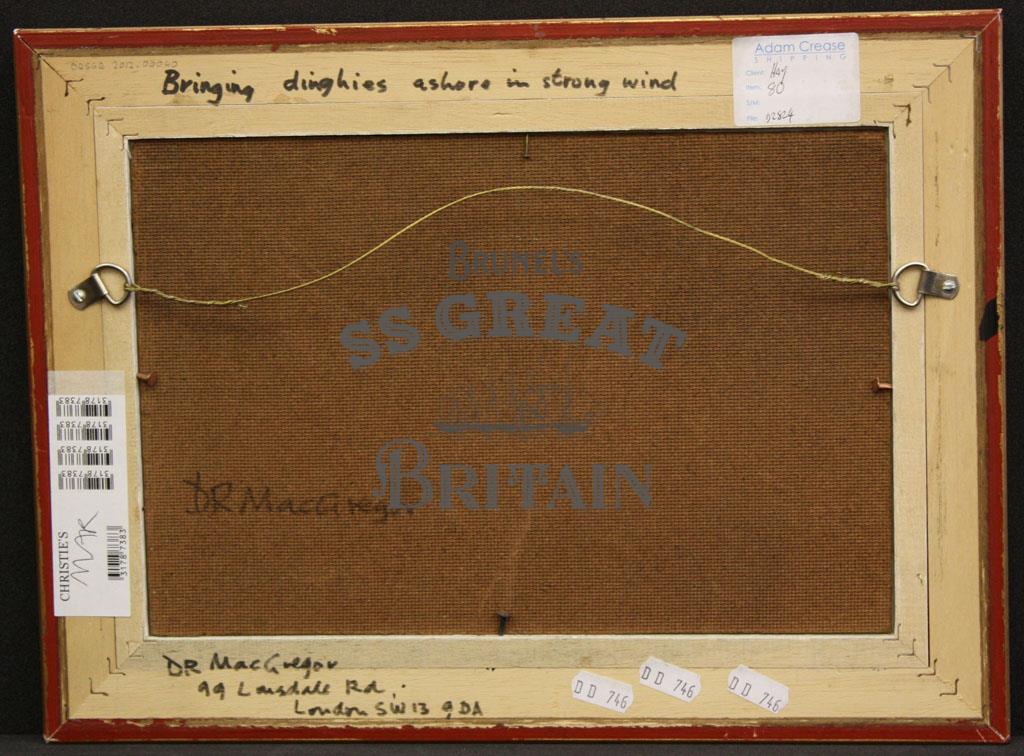 Bringing dinghies ashore in strong wind
Adam Crease
SHIPPING
Client: Hay
Item: 80
S/M:
File: 02824
BRUNEL'S
SS GREAT
BRITAIN
DR MacGregor
31787383
31787383
31787383
31787383
CHRISTIE'S
MAR
31787383
DR MacGregor
99 Lonsdale Rd.
London SW13 9DA
DD 746
DD 746
DD 746